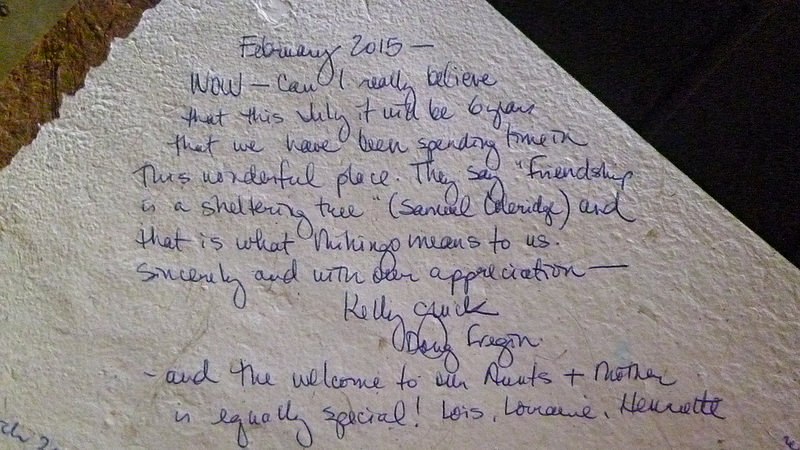 February 2015 —
WOW — Can I really believe
that this July it will be 6 years
that we have been spending time in
This wonderful place. They say "Friendship
is a sheltering tree" (Samuel Coleridge) and
that is what Mihingo means to us.
Sincerely and with our appreciation —
Kelly
Doug Fregin.
- and the welcome to our Aunts + Mother
is equally special! Lois, Lorraine, Henriette